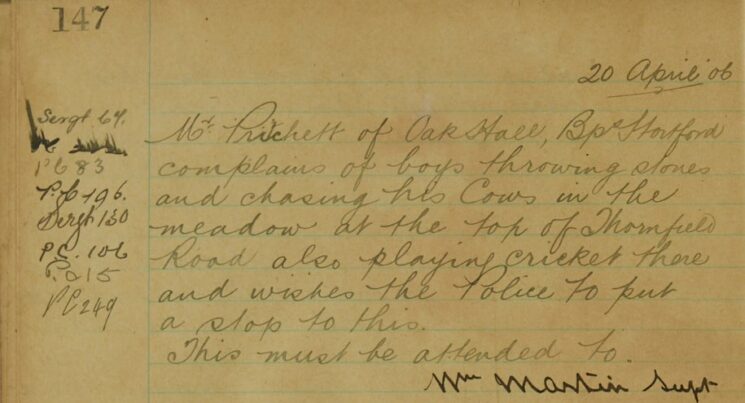 147
20 April 06
Sergt 64.
PC 83
PC 196.
Sergt 130
P.C. 106
P.C 15
PC 249
Mr. Prichett of Oak Hall, Bps Stortford
complains of boys throwing stones
and chasing his Cows in the
meadow at the top of Thornfield
Road also playing cricket there
and wishes the Police to put
a stop to this.
This must be attended to.
Wm Martin Supt